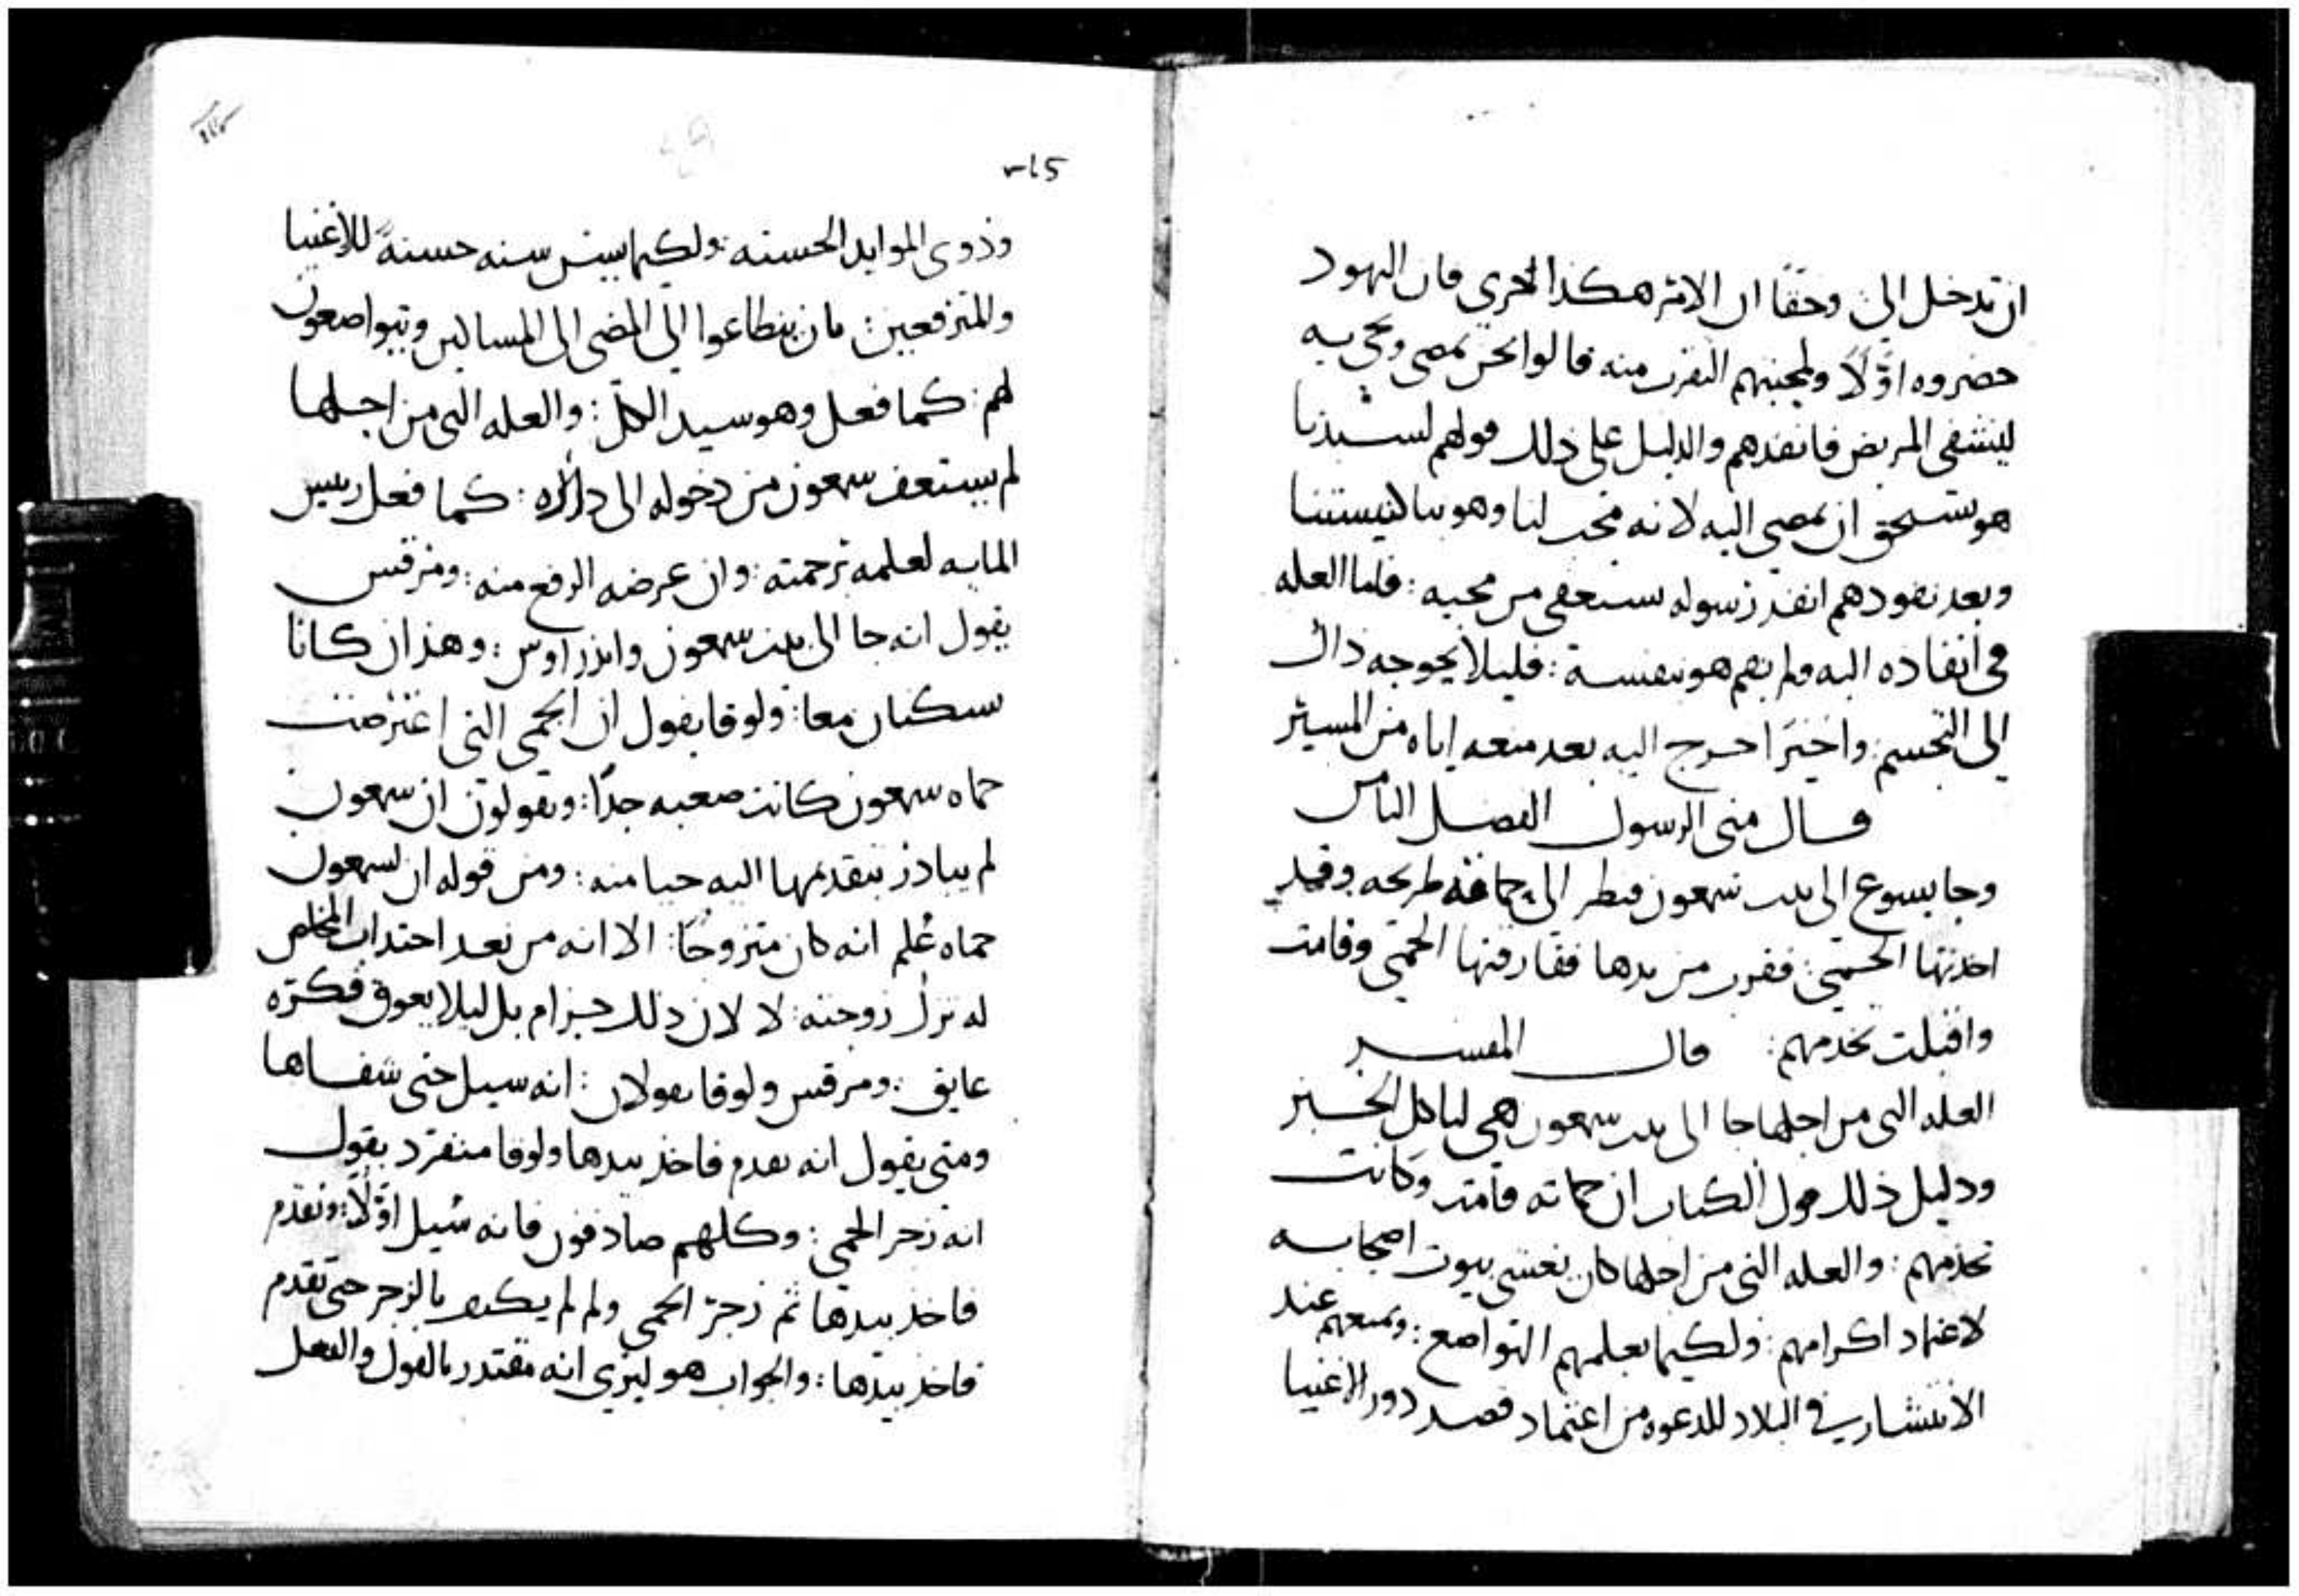 ان تدخل الي وحقا ان الامر هكذا الحري فان اليهود
حضروه اوّلاً ولمحبتهم التقرب منه قالوا نحن نمضي ونجي به
ليشفي المريض فانفذهم والدليل علي ذلك قولهم لسيدنا
هو يستحق ان يمضي اليه لانه محب لنا وهو بنا كنيستنا
وبعد نفودهم انفذ رسوله يستعفي من مجيه : فاما العله
في انفاذه اليه ولم يقم هو بنفسه : فليلا يحوجه ذاك
الي التجسم : واخيرا خرج اليه بعد منعه اياه من المسير
قال متى الرسول الفصل الثامن
وجا يسوع الي بيت سمعون فنظر الي حماته طريحه وقد
اخذتها الحمى : فقرب من يدها ففارقتها الحمى وقامت
واقبلت تخدمهم : قال المفسر
العله التي من اجلها جا الى بيت سمعون هي لياكل الخبز
ودليل ذلك قول الكتاب ان حماته قامت وكانت
تخدمهم : والعله التي من اجلها كان يغشي بيوت اصحابه
لاعتماد اكرامهم : ولكيما يعلمهم التواضع : ويمنعهم عند
الانتشار في البلاد للدعوه من اعتماد قصد دور الاغنيا
وذوي الموايد الحسنه : ولكيما يسن سنه حسنةً للاغنيا
والمترفعين : بان يتطاعوا الي المضي الى المساكين ويتواضعون
لهم : كما فعل وهو سيد الكل : والعله التي من اجلها
لم يستعف سمعون من دخوله الى داره : كما فعل رييس
المايه لعلمه برحمته : وان غرضه الرفع منه : ومرقس
يقول انه جا الى بيت سمعون واندراوس : وهذان كانا
يسكنان معا : ولوقا يقول ان الحمى التي اعترضت
حماه سمعون كانت صعبه جدًا : ويقولون ان سمعون
لم يبادر بتقديمها اليه حيا منه : ومن قوله ان لسمعون
حماه عُلم انه كان متزوجًا : الا انه من بعد اجتداب المخلص
له ترك زوجته : لا لان ذلك حرام بل ليلا يعوق فكره
عايق : ومرقس ولوقا يقولان : انه سيل حتى شفاها
ومتى يقول انه تقدم فاخذ بيدها ولوقا منفرد يقول
انه زجر الحمى : وكلهم صادقون فانه سُيل اوّلاً : وتقدم
فاخذ بيدها ثم زجر الحمى ولم لم يكتف بالزجر حتى تقدم
فاخذ بيدها : والجواب هو ليري انه مقتدر بالقول والفعل